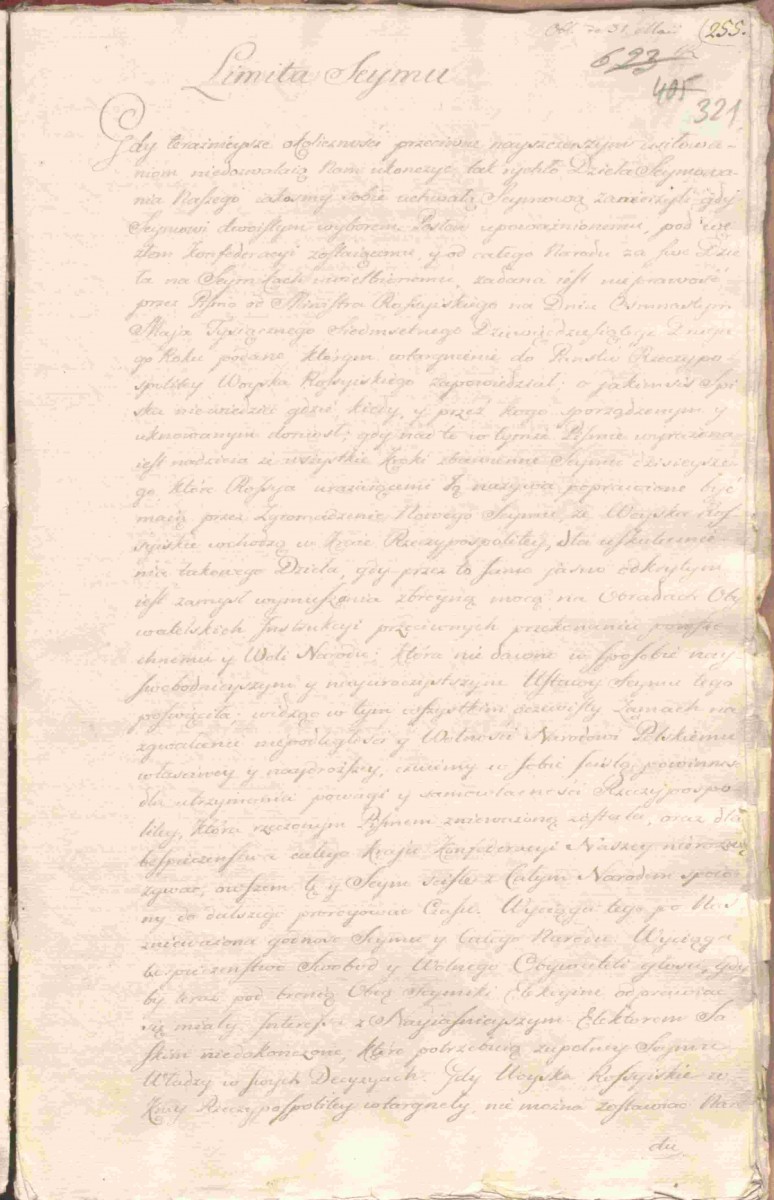 (255.
623
405
321
Limita Seymu
Gdy teraźnieysze okoliczności przeciwne nayszczerszym usiłowa-
niom niedozwalaią Nam ukończyć tak rychło Dzieła Seymowa-
nia Naszego iakośmy sobie uchwałą Seymową zamierzyli, gdy
Seymowi dwoistym wyborem Posłów upoważnionemu, pod wę-
złem Konfederacyi zostaiącemu, y od całego Narodu za swe Dzie-
ła na Seymikach uwielbionemu, zadana iest nieprawość
przez Pismo od Ministra Rossyiskiego na Dniu Osmnastym
Maja Tysiącznego Siedmsetnego Dziewięćdziesiątego Drugie-
go Roku podane, którym wtargnienie do Państw Rzeczypo-
spolitey Woyska Rossyiskiego zapowiedział; o jakiemsiś Spi-
sku niewiedzieć gdzie, kiedy, y przez kogo sporządzonym y
uknowanym doniosł; gdy nad to w tymże Piśmie wyrażona
iest nadzieia że wszystkie kroki zbawienne Seymu dzisieysze-
go, które Rossya urażaiącemi Ją nazywa, poprawione być
maią przez Zgromadzenie Nowego Seymu, że Woyska Ros-
syiskie wchodzą w kraie Rzeczypospolitey, dla uskutecznie-
nia takowego Dzieła, gdy przez to samo jasno odkrytym
iest zamysł wymuszenia zbroyną mocą na Obradach Oby-
watelskich Instrukcyi przeciwnych przekonaniu powsze-
chnemu y Woli Narodu; która nie dawno w sposobie nay-
swobodnieyszym y nayuroczystszym Ustawy Seymu tego
poświęciła: widząc w tym wszystkim oczewisty zamach na
zgwałcenie niepodległości y Wolności Narodowi Polskiemu
właściwey y naydroższey, czuiemy w sobie ścisłą powinność
dla utrzymania powagi y samowładności Rzeczypospo-
litey, która rzeczonym Pismem znieważoną została, oraz dla
bespieczeństwa całego kraju Konfederacyi Naszey nierozwią-
zywać, owszem tę y Seym ściśle z Całym Narodem spoio-
ny do dalszego prorogować Czasu. Wyciąga tego po Nas
znieważona godność Seymu y całego Narodu. Wyciąga
bespieczeństwo Swobod y Wolnego Obywateli głosu, gdy-
by teraz pod bronią Obcą Seymiki Elekcyine odprawiać
się miały. Interessa z Nayiaśnieyszym Elektorem Sa-
skim niedokończone, które potrzebuią zupełney Seymu
Władzy w swych Decyzyach. Gdy Woyska Rossyiskie w
Kray Rzeczypospolitey wtargnęły, nie można zostawiać Naro-
du